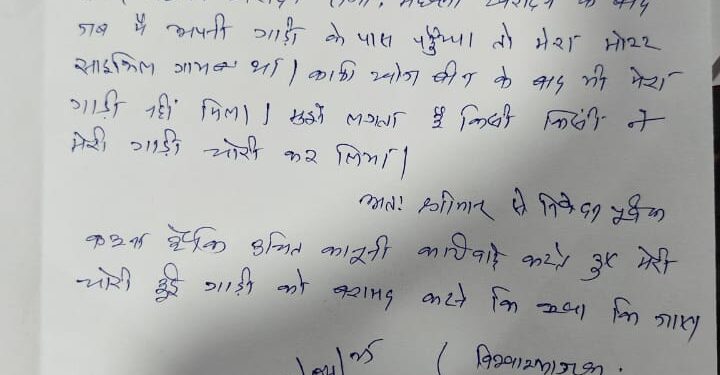 जब मैं अपनी गाड़ी के पास पहुँचा तो मेरा मोटर
साइकिल गायब था। काफी खोज बीन के बाद भी मेरा
गाड़ी नहीं मिला। मुझे लगता है किसी किसी ने
मेरी गाड़ी चोरी कर लिया।
अतः श्रीमान से निवेदन पूर्वक
कहना है कि उचित कानूनी कार्यवाई करते हुए मेरी
चोरी हुई गाड़ी को बरामद करने कि कृपा कि जाय।